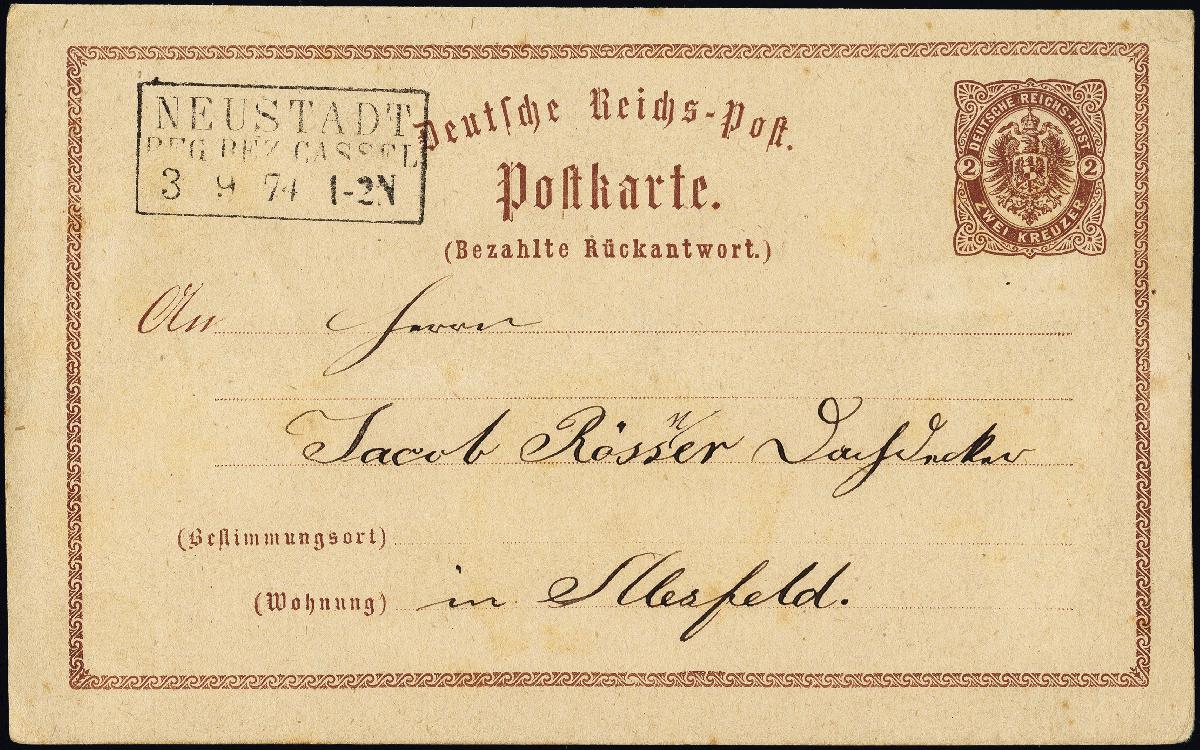 NEUSTADT
REG. BEZ. CASSEL
3 9 74 1-2N
Deutsche Reichs-Post.
Postkarte.
(Bezahlte Rückantwort.)
DEUTSCHE REICHS-POST
2 2
ZWEI KREUZER
An Herrn
Jacob Rösser Dachdecker
(Bestimmungsort)
(Wohnung) in